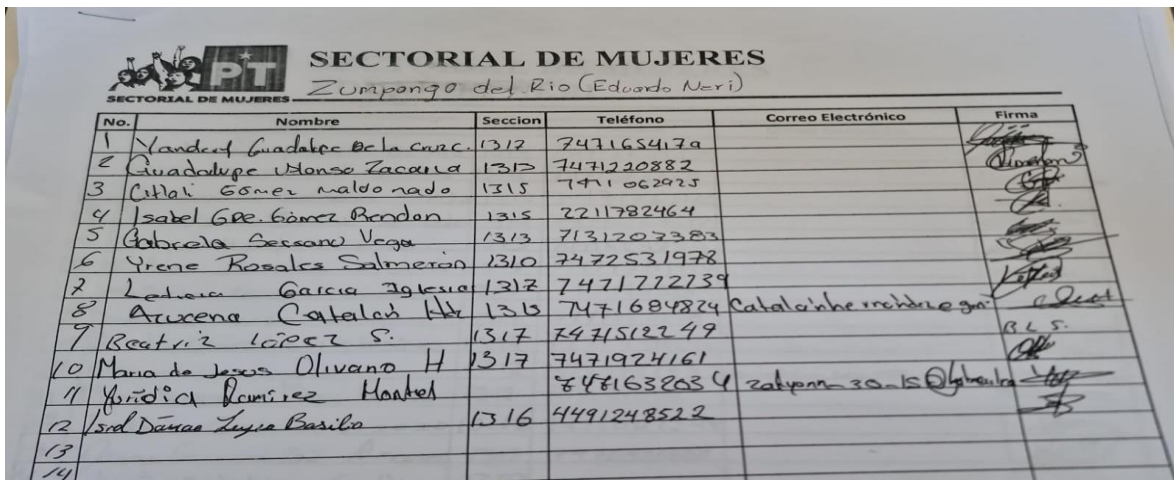 PT
SECTORIAL DE MUJERES
SECTORIAL DE MUJERES
Zumpango del Rio (Eduardo Neri)
No. Nombre Seccion Teléfono Correo Electrónico Firma
1 Guadalupe De la Cruz C. 1312 7471654179
2 Guadalupe Alonso Zacaria 1313 7471220882
3 Citlali Gómez maldonado 1315 7471062925
4 Isabel Gpe. Gómez Rendon 1315 2211782464
5 Gabriela Serrano Vega 1313 7131207383
6 Yrene Rosales Salmerón 1310 7472531978
7 Garcia Iglesia 1317 7471722739
8 Azucena Catalán Hdz 1313 7471684824
9 Beatriz López S. 1317 7471512249 B L S.
10 Maria de Jesus Olivano H 1317 7471924161
11 Yuridia Ramirez Montiel
12 Basilio 1316 4491248522
13
14